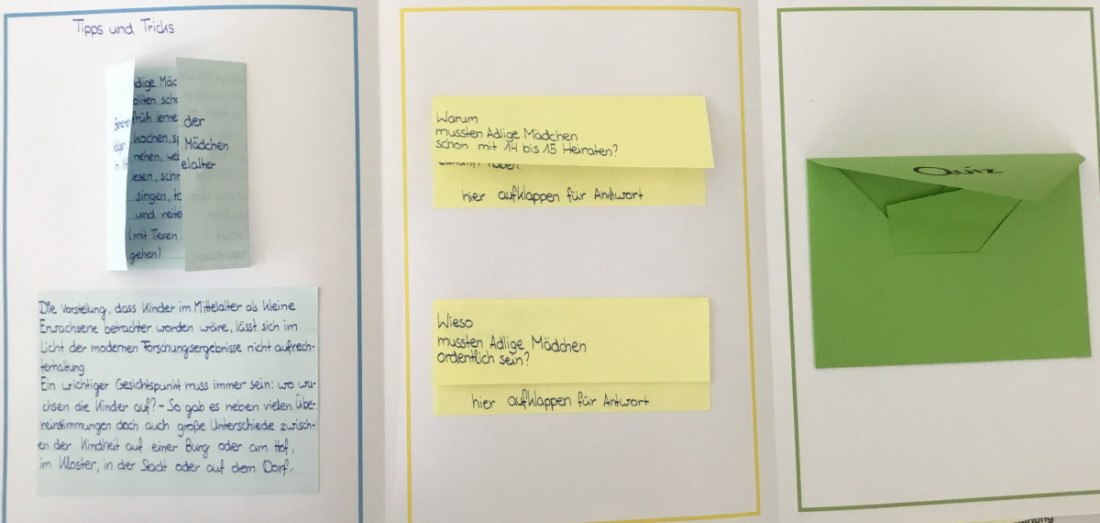 Tipps und Tricks
früh
der
Mädchen
singen,
und
(mit
gehen)
Die Vorstellung, dass Kinder im Mittelalter als kleine
Erwachsene betrachter worden wäre, lässt sich im
Licht der modernen Forschungsergebnisse nicht aufrech-
terhaltung
Ein wichtiger Gesichtspunkt muss immer sein: wo wu-
chsen die Kinder auf? - So gab es neben vielen Übe-
reinstimmungen doch auch große Unterschiede zwisch-
en der Kindheit auf einer Burg oder am Hof,
im Kloster, in der Stadt oder auf dem Dorf.
Warum
mussten Adlige Mädchen
schon mit 14 bis 15 Heiraten?
hier aufklappen für Antwort
Wieso
mussten Adlige Mädchen
ordentlich sein?
hier aufklappen für Antwort
Quiz